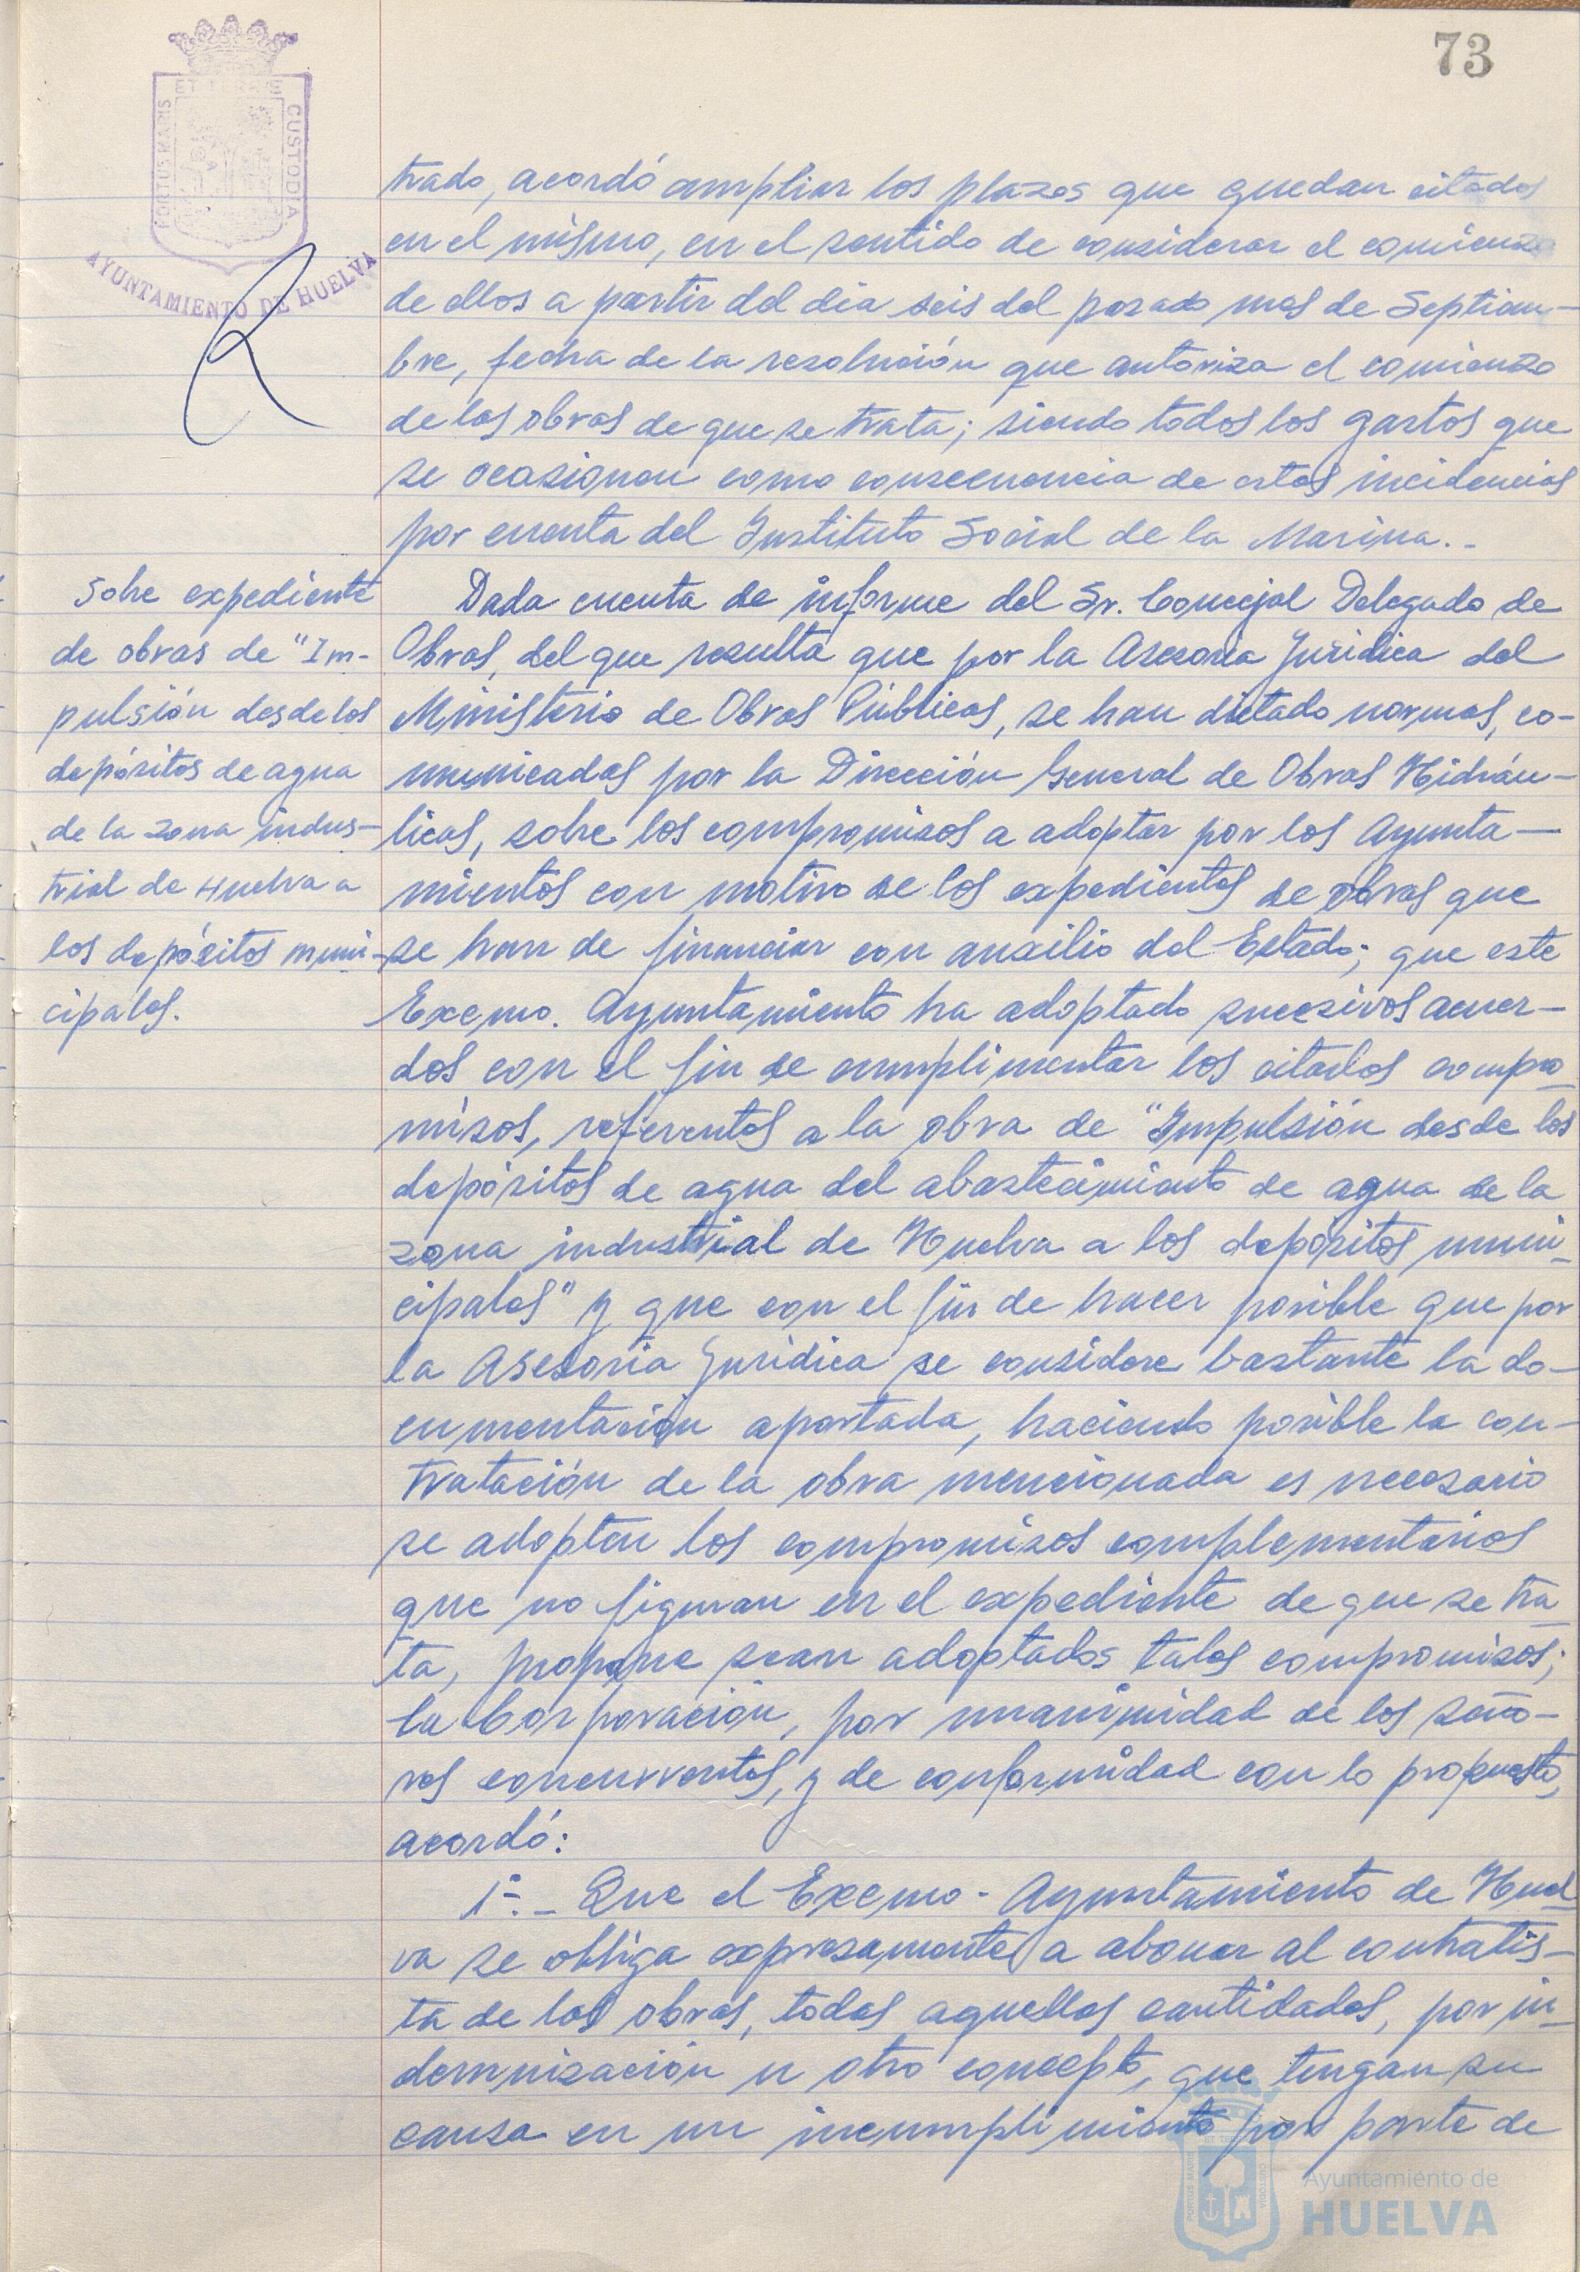 73
PORTUS MARIS
ET TERRE
CUSTODIA
AYUNTAMIENTO DE HUELVA
trado, acordó ampliar los plazos que quedan citados
en el mismo, en el sentido de considerar el comienzo
de ellos a partir del día seis del pasado mes de Septiem-
bre, fecha de la resolución que autoriza el comienzo
de las obras de que se trata; siendo todos los gastos que
se ocasionen como consecuencia de estas incidencias
por cuenta del Instituto Social de la Marina.-
Sobre expediente
de obras de "Im-
pulsión desde los
depósitos de agua
de la zona indus-
trial de Huelva a
los depósitos muni-
cipales.
Dada cuenta de informe del Sr. Concejal Delegado de
Obras, del que resulta que por la Asesoria Juridica del
Ministerio de Obras Públicas, se han dictado normas, co-
municadas por la Dirección General de Obras Hidráu-
licas, sobre los compromisos a adoptar por los Ayunta-
mientos con motivo de los expedientes de obras que
se han de financiar con auxilio del Estado; que este
Excmo. Ayuntamiento ha adoptado sucesivos acuer-
dos con el fin de cumplimentar los citados compro-
misos, referentes a la obra de "Impulsión desde los
depósitos de agua del abastecimiento de agua de la
zona industrial de Huelva a los depósitos muni-
cipales" y que con el fin de hacer posible que por
la Asesoria Juridica se considere bastante la do-
cumentación aportada, haciendo posible la con-
tratación de la obra mencionada es necesario
se adopten los compromisos complementarios
que no figuran en el expediente de que se tra-
ta, propone sean adoptados tales compromisos;
la Corporación, por unanimidad de los seño-
res concurrentes, y de conformidad con lo propuesto,
acordó:
1º.- Que el Excmo. Ayuntamiento de Huel-
va se obliga expresamente a abonar al contratis-
ta de las obras, todas aquellas cantidades, por in-
demnización u otro concepto, que tengan su
causa en un incumplimiento por parte de
Ayuntamiento de
HUELVA